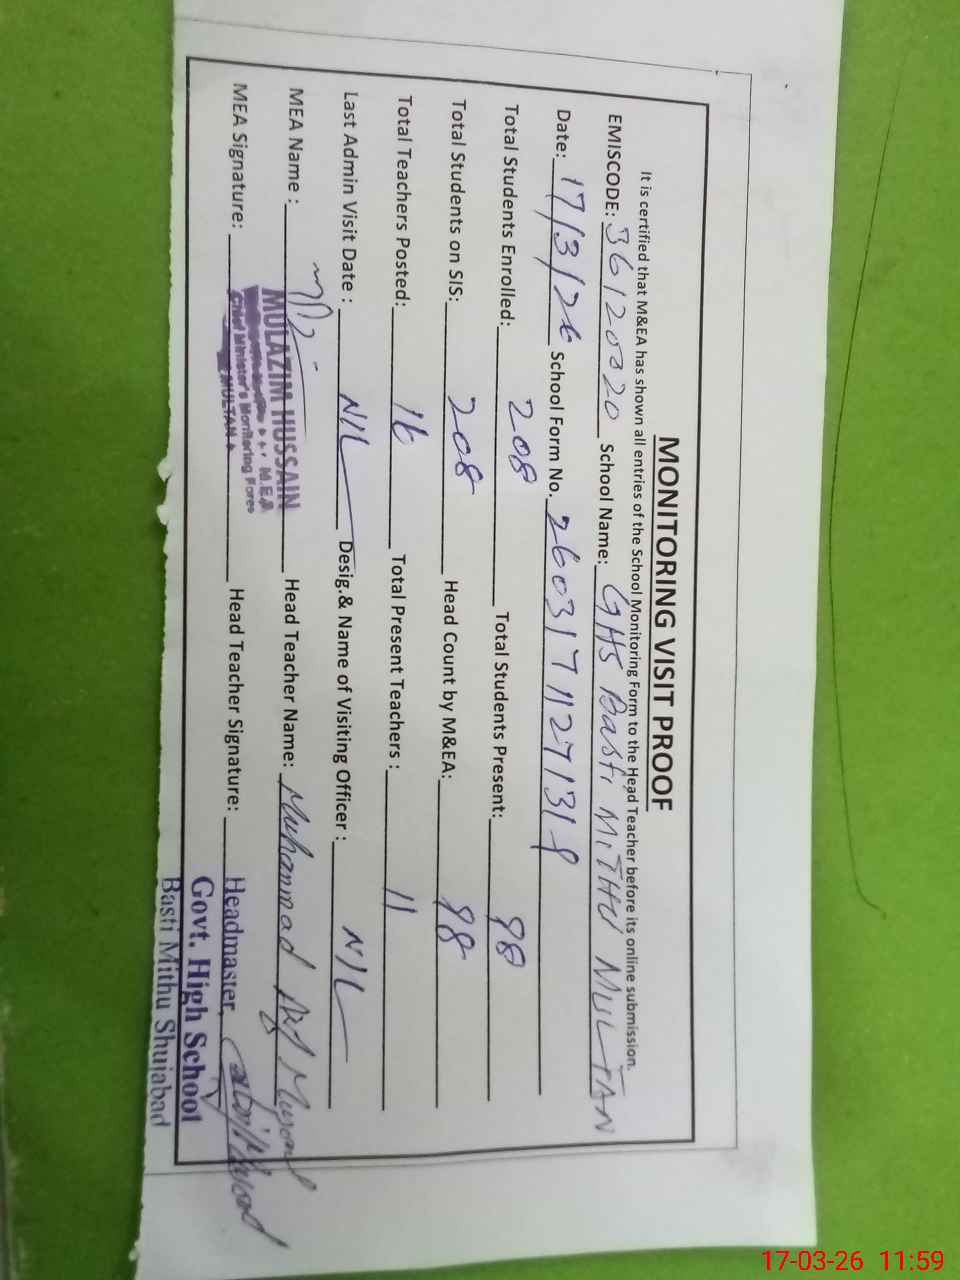 MONITORING VISIT PROOF
It is certified that M&EA has shown all entries of the School Monitoring Form to the Head Teacher before its online submission.
EMISCODE: 36120320 School Name: GHS Basti MITHU MULTAN
Date: 17/3/26 School Form No. 260317112713
Total Students Enrolled: 208 Total Students Present: 98
Total Students on SIS: 208 Head Count by M&EA: 98
Total Teachers Posted: 16 Total Present Teachers : 11
Last Admin Visit Date : NIL Desig.& Name of Visiting Officer : NIL
MEA Name : MULAZIM HUSSAIN Head Teacher Name: Muhammad
M.E.A
Chief Minister's Monitoring Force
MULTAN
MEA Signature: Head Teacher Signature:
Headmaster,
Govt. High School
Basti Mithu Shujabad
17-03-26 11:59